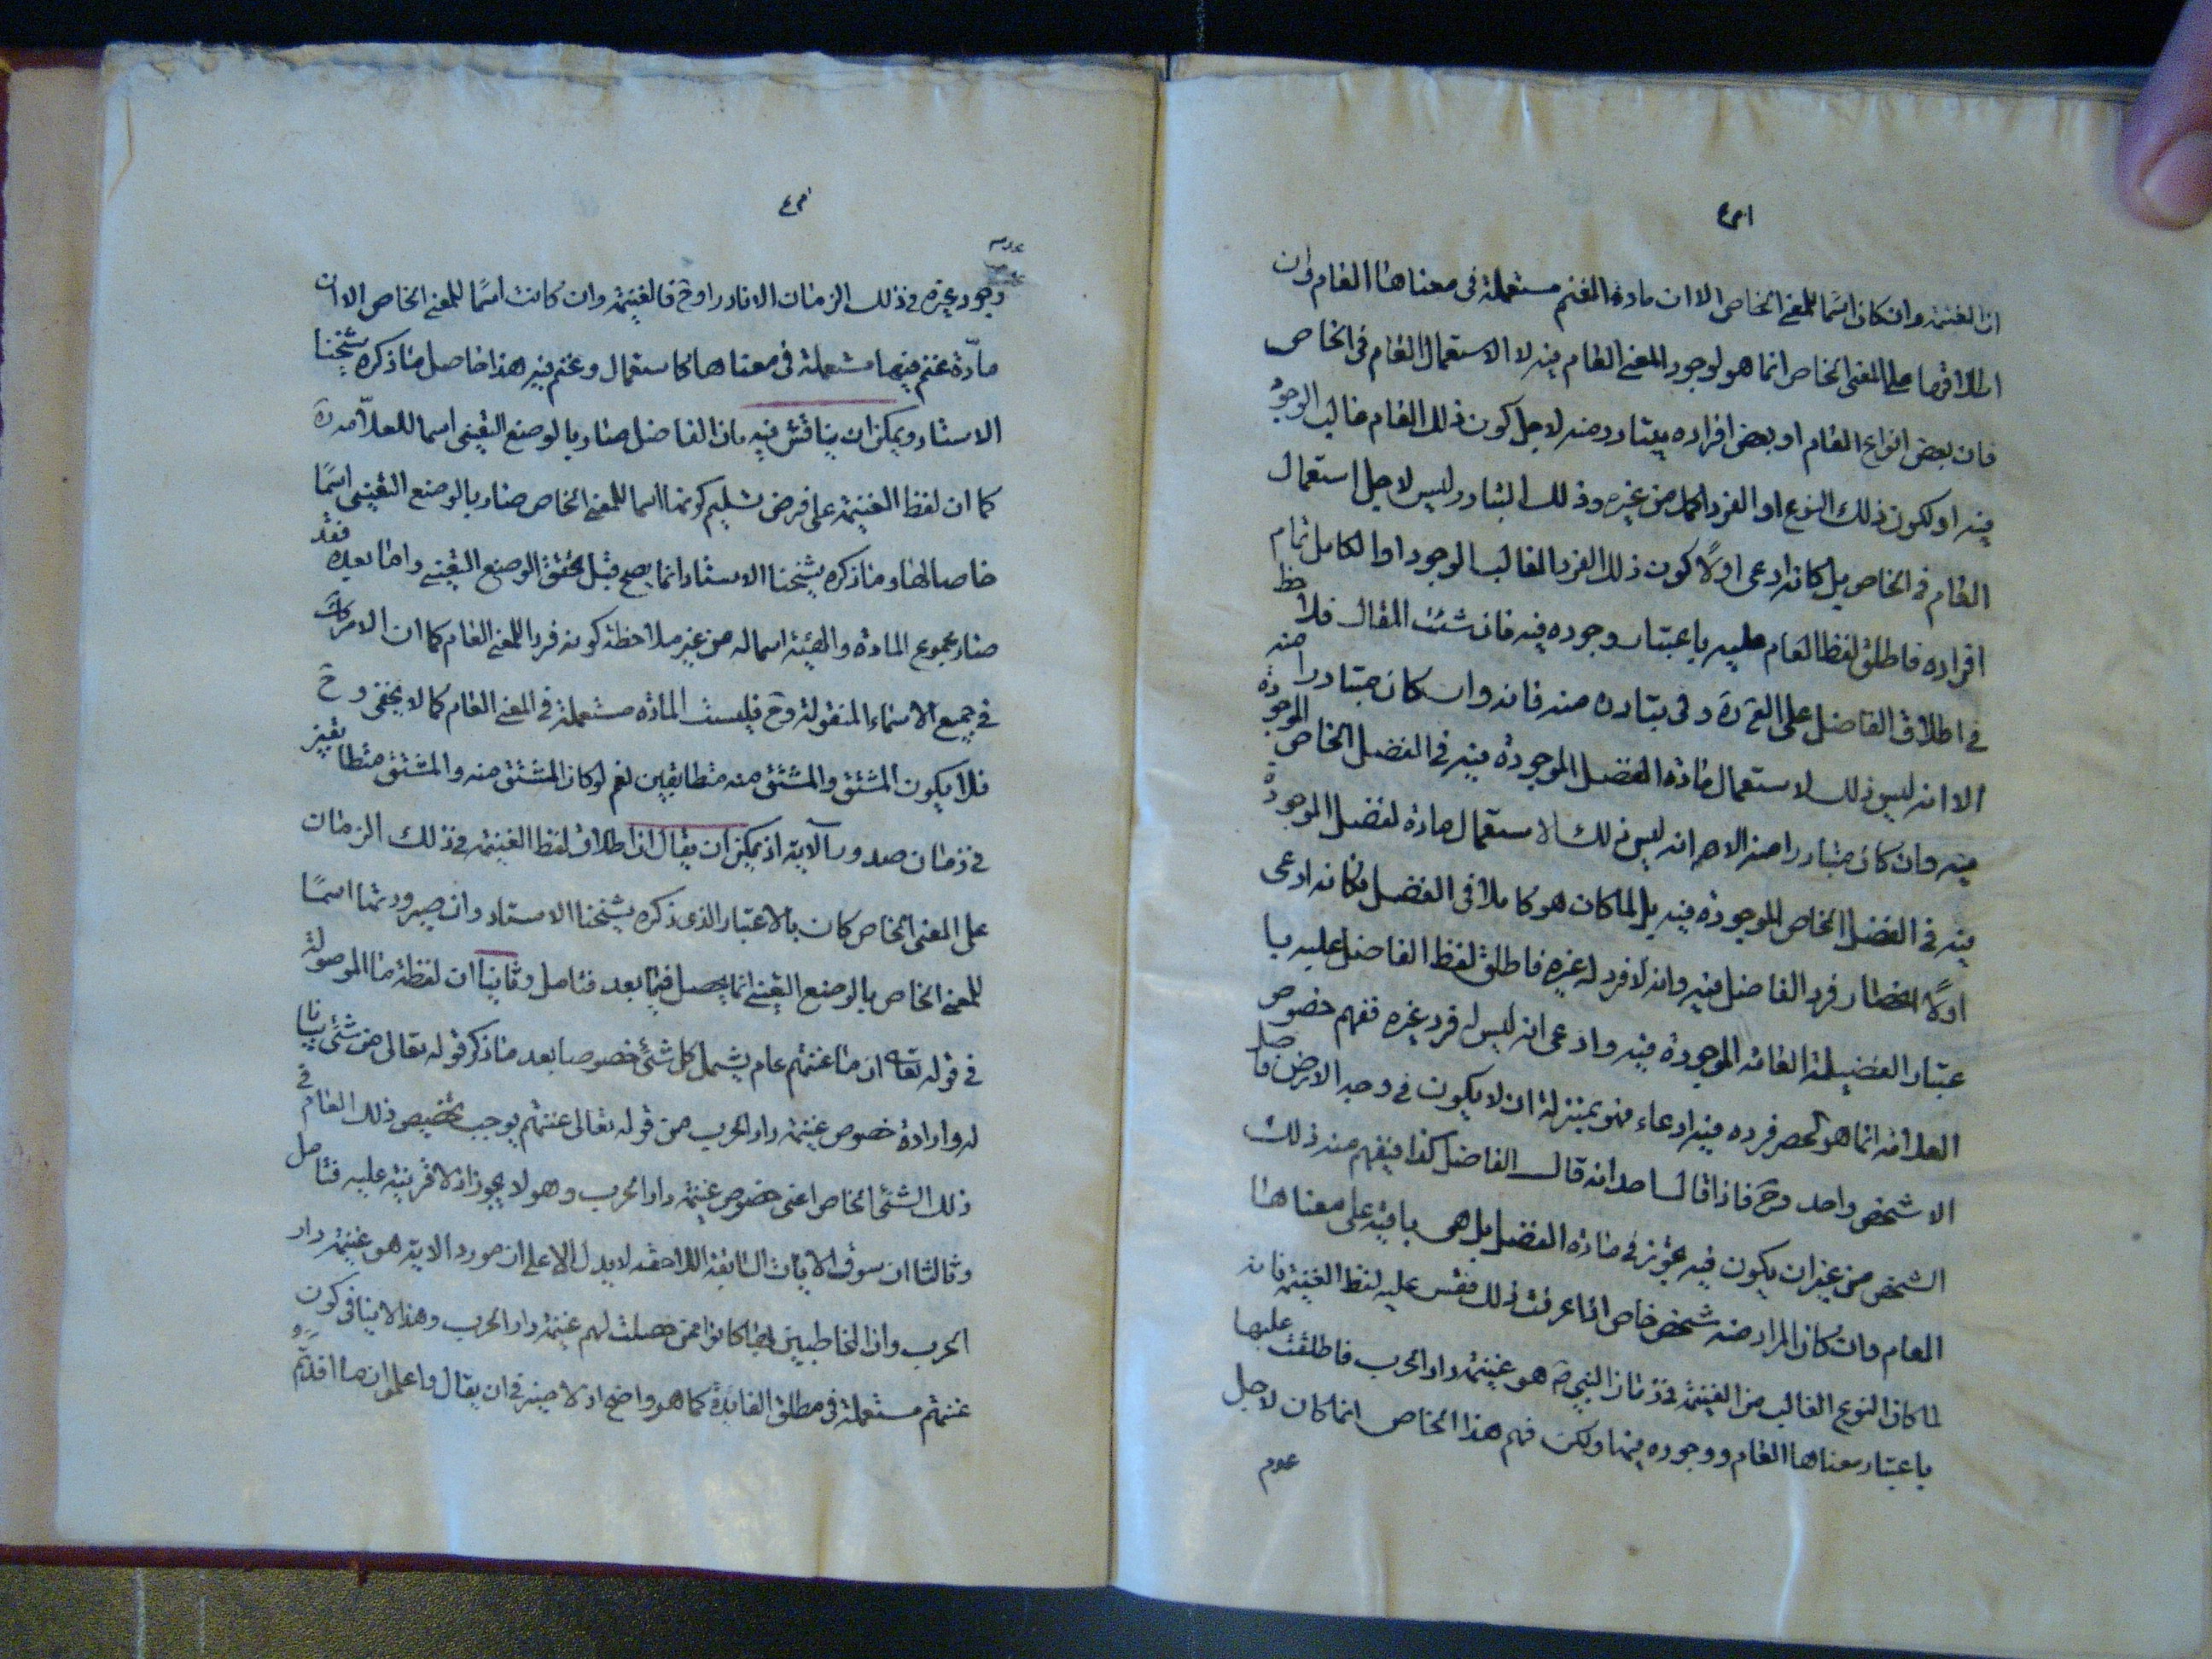 ان الغنيمة وان كان اسمًا للمعنى الخاص الا ان مادة المغنم مستعملة فى معناها العام وان
اطلاقها على المعنى الخاص انما هو لوجود المعنى العام فيه لا الاستعمال العام فى الخاص
فان بعض انواع العام او بعض افراده يتبادر منه لاجل كون ذلك العام غالب الوجود
فيه او لكون ذلك النوع او الفرد اكمل من غيره وذلك التبادر ليس لاجل استعمال
العام فى الخاص بل كانه ادعى اولًا كون ذلك الفرد الغالب الوجود او الكامل تمام
افراده فاطلق لفظ العام عليه باعتبار وجوده فيه فان شئت المقال فلاحظ
فى اطلاق الفاضل على العلامة وفى تبادره منه فانه وان كان متبادرا منه
الا انه ليس ذلك لاستعمال مادة الفضل الموجودة فيه فى الفضل الخاص الموجودة
فيه وان كان متبادرا منه الا انه ليس ذلك لاستعمال مادة لفضل الموجودة
فيه فى الفضل الخاص الموجودة فيه بل لما كان هو كاملا فى الفضل فكانه ادعى
اولًا انحصار فرد الفاضل فيه وانه لا فرد له غيره فاطلق لفظ الفاضل عليه با
عتبار الفضيلة العامة الموجودة فيه وادعى انه ليس له فرد غيره ففهم خصوص
العلامة انما هو لحصر فرده فيه ادعاء فهو بمنزلة ان لا يكون فى وجه الارض فاضل
الا شخص واحد وح فاذا قال احد انه قال الفاضل كذا فيفهم منه ذلك
الشخص من غير ان يكون فيه تجوز فى مادة الفضل بل هى باقية على معناها
العام وان كان المراد منه شخص خاص اذا عرفت ذلك فقس عليه لفظ الغنيمة فانه
لما كان النوع الغالب من الغنيمة فى زمان النبى ص هو غنيمة دار الحرب فاطلقت عليها
باعتبار معناها العام ووجوده فيها ولكن فهم هذا الخاص انما كان لاجل
عدم
عدم
وجود غيره فى ذلك الزمان الا نادرا وح فالغنيمة وان كانت اسمًا للمعنى الخاص الا ان
مادّة غنم فيها مستعملة فى معناها كاستعمال وغنم فيه هذا حاصل ما ذكره شيخنا
الاستاد ويمكن ان يناقش فيه بان الفاضل صار بالوضع التعينى اسما للعلّامة ره
كما ان لفظ الغنيمة على فرض تسليم كونها اسما للمعنى الخاص صار بالوضع التعينى اسمًا
خاصا لها وما ذكره شيخنا الاستاد انما يصح قبل تحقق الوضع التعينى واما بعده فقد
صار مجموع المادة والهيئة اسما له من غير ملاحظة كونه فردا للمعنى العام كما ان الامر كك
فى جميع الاسماء المنقولة وح فليست المادة مستعملة فى المعنى العام كما لا يخفى وح
فلا يكون المشتق والمشتق منه متطابقين نعم لو كان المشتق منه والمشتق متطابقين
فى زمان صدور الآية اذ يمكن ان يقال ان اطلاق لفظ الغنيمة فى ذلك الزمان
على المعنى الخاص كان بالاعتبار الذى ذكره شيخنا الاستاد وان صيرورتها اسمًا
للمعنى الخاص بالوضع التعينى انما يحصل فيما بعد فتامل وثانيا ان لفظة ما الموصولة
فى قوله تعالى ان ما غنمتم عام يشمل كل شئ خصوصا بعد ما ذكر قوله تعالى من شئ بيانا
له وارادة خصوص غنيمة دار الحرب من قوله تعالى غنمتم يوجب تخصيص ذلك العام فى
ذلك الشئ الخاص اعنى خصوص غنيمة دار الحرب وهو لا يجوز اذ لا قرينة عليه فتامل
وثالثا ان سوق الآيات السابقة اللاحقة لا يدل الا على ان مورد الآية هو غنيمة دار
الحرب وان المخاطبين بها كانوا ممن حصلت لهم غنيمة دار الحرب وهذا لا ينافى كون
غنمتم مستعملة فى مطلق الفايدة كما هو واضح اذ لا ضير فى ان يقال واعلموا ان ما